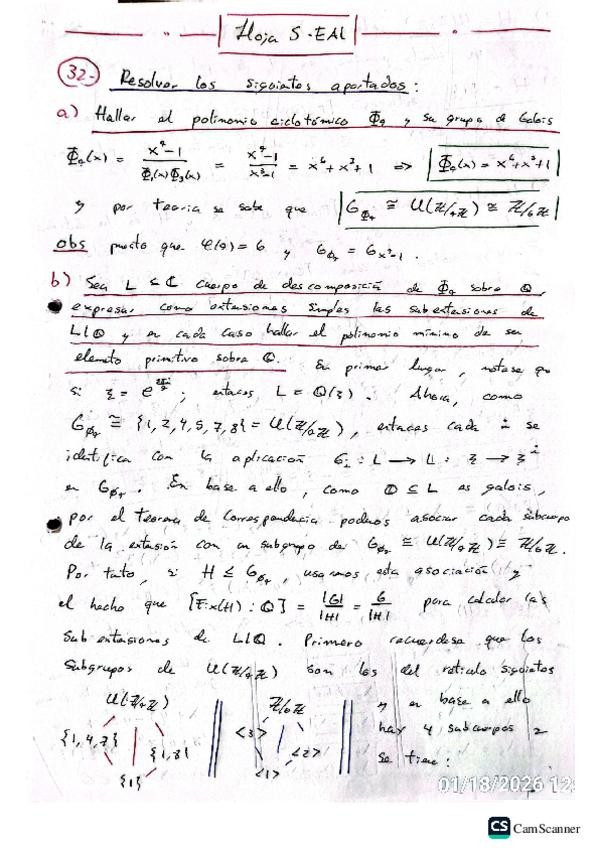 Hoja 5-EAL
32- Resolver los siguientes apartados:
a) Hallar el polinomio ciclotómico Φ₉ y su grupo de Galois
Φ₉(x) = x⁹-1 / Φ₁(x)Φ₃(x) = x⁹-1 / x³-1 = x⁶+x³+1 => Φ₉(x) = x⁶+x³+1
y por teoría se sabe que G_Φ₉ ≅ U(ℤ/9ℤ) ≅ ℤ/6ℤ
obs puesto que φ(9) = 6 y G_Φ₉ = G_x⁹-1.
b) Sea L ⊆ ℂ cuerpo de descomposición de Φ₉ sobre ℚ,
expresar como extensiones simples las subextensiones de
L|ℚ y en cada caso hallar el polinomio mínimo de su
elemento primitivo sobre ℚ. En primer lugar, notese que
si ξ = e^(2πi/9); entonces L = ℚ(ξ). Ahora, como
G_Φ₉ ≅ {1,2,4,5,7,8} = U(ℤ/9ℤ), entonces cada i se
identifica con la aplicación σᵢ : L → L : ξ → ξⁱ
en G_Φ₉. En base a ello, como ℚ ⊆ L es galois,
por el Teorema de Correspondencia podemos asociar cada subcuerpo
de la extensión con un subgrupo de G_Φ₉ ≅ U(ℤ/9ℤ) ≅ ℤ/6ℤ.
Por tanto, si H ≤ G_Φ₉, usaremos esta asociación y
el hecho que [Fix(H) : ℚ] = |G|/|H| = 6/|H| para calcular las
subextensiones de L|ℚ. Primero recuerdese que los
subgrupos de U(ℤ/9ℤ) son los del retículo siguientes
U(ℤ/9ℤ) ℤ/6ℤ y en base a ello
{1,4,7} {1,8} <3> <2> hay 4 subcuerpos
{1} <1> se tiene:
01/18/2026 12:
CS CamScanner